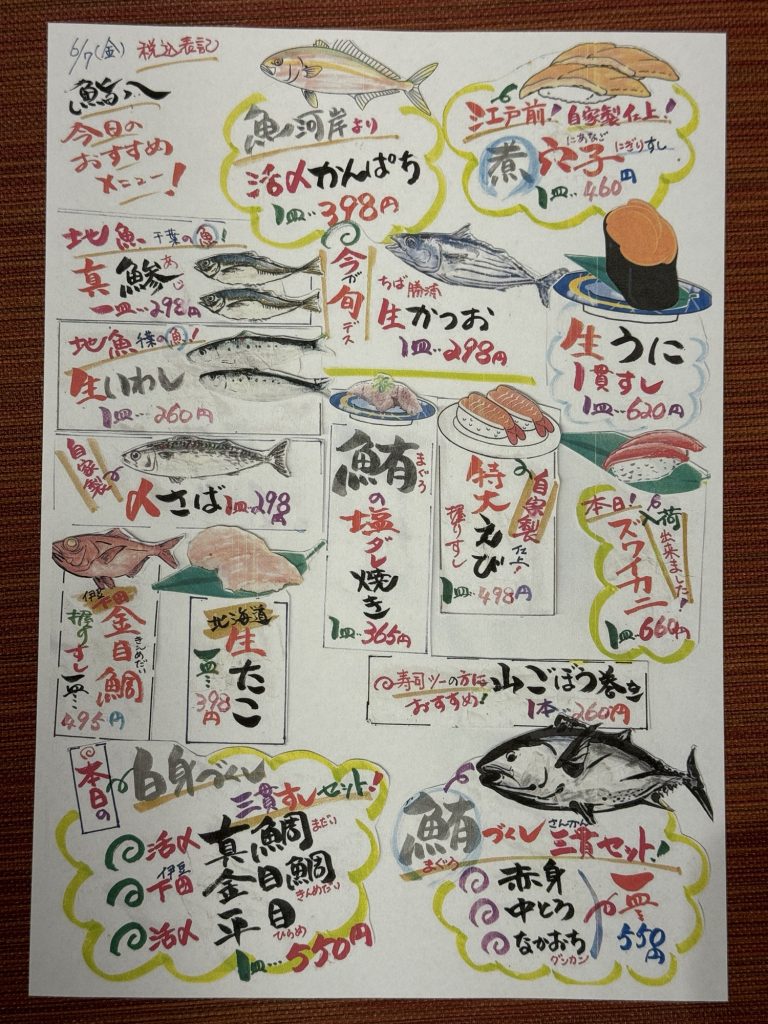 6/7(金) 税込表記
鮨八
今日の
おすすめ
メニュー!
魚河岸より
活〆かんぱち
1皿…398円
江戸前!自家製仕上!
にあなご にぎりすし
煮穴子
1皿…460円
地魚 千葉の魚!
真鯵
あじ
一皿…298円
今が旬デス
ちば勝浦
生かつお
1皿…298円
生うに
1貫すし
1皿…620円
地魚 千葉の魚!
生いわし
1皿…260円
自家製
〆さば 1皿…298円
鮪の塩ダレ焼き
まぐろ
1皿…365円
自家製仕上!
特大えび
握りすし
1皿…498円
本日!入荷出来ました!
ズワイカニ
1皿…660円
伊豆下田
金目鯛
きんめだい
握りすし一皿…
495円
北海道
生たこ
一皿…
398円
寿司ツーの方に
おすすめ!
山ごぼう巻き
1本…260円
本日の
白身づくし
三貫すしセット!
活〆 真鯛 まだい
伊豆
下田 金目鯛 きんめだい
活〆 平目 ひらめ
1皿…550円
鮪づくし三貫セット!
まぐろ さんかん
赤身
中とろ
なかおち
グンカン
一皿…
550円